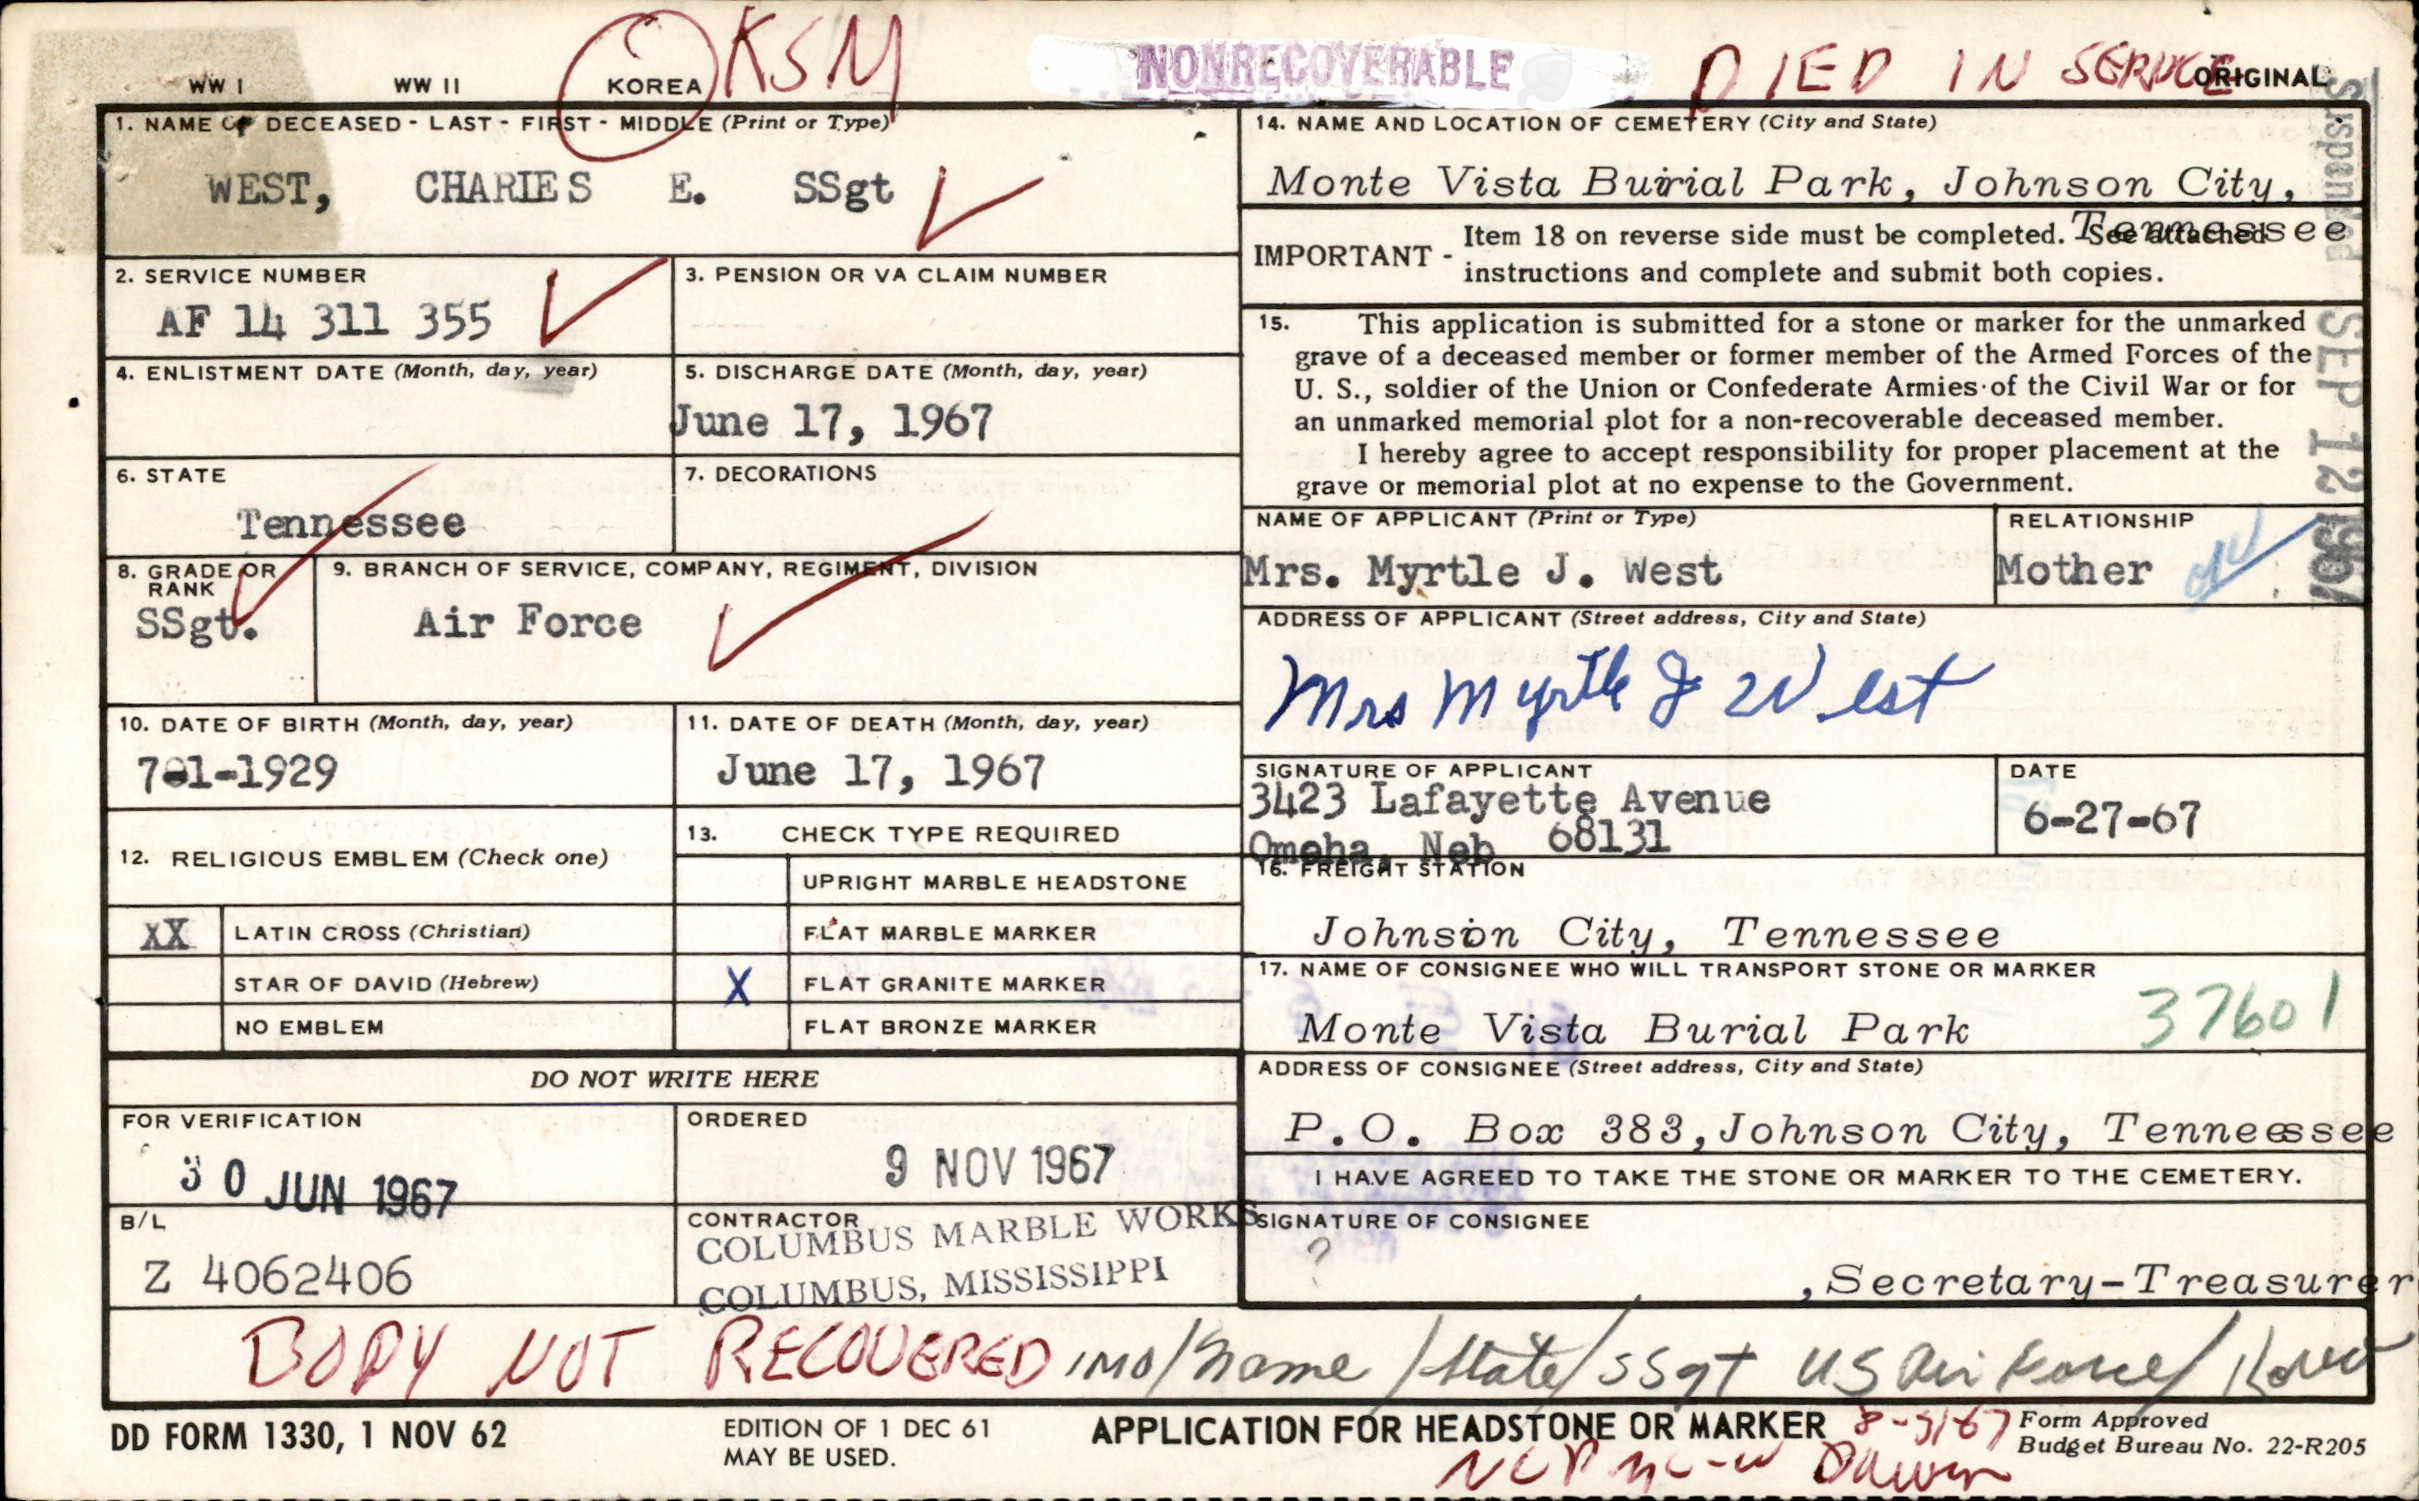 WW I WW II KOREA KSM NONRECOVERABLE DIED IN SERVICE ORIGINAL
1. NAME OF DECEASED - LAST - FIRST - MIDDLE (Print or Type)
WEST, CHARIES E. SSgt
2. SERVICE NUMBER
AF 14 311 355
3. PENSION OR VA CLAIM NUMBER
4. ENLISTMENT DATE (Month, day, year)
5. DISCHARGE DATE (Month, day, year)
June 17, 1967
6. STATE
Tennessee
7. DECORATIONS
8. GRADE OR
RANK
SSgt.
9. BRANCH OF SERVICE, COMPANY, REGIMENT, DIVISION
Air Force
10. DATE OF BIRTH (Month, day, year)
7-1-1929
11. DATE OF DEATH (Month, day, year)
June 17, 1967
12. RELIGIOUS EMBLEM (Check one)
XX LATIN CROSS (Christian)
STAR OF DAVID (Hebrew)
NO EMBLEM
13. CHECK TYPE REQUIRED
UPRIGHT MARBLE HEADSTONE
FLAT MARBLE MARKER
X FLAT GRANITE MARKER
FLAT BRONZE MARKER
DO NOT WRITE HERE
FOR VERIFICATION
30 JUN 1967
ORDERED
9 NOV 1967
B/L
Z 4062406
CONTRACTOR
COLUMBUS MARBLE WORKS
COLUMBUS, MISSISSIPPI
14. NAME AND LOCATION OF CEMETERY (City and State)
Monte Vista Buirial Park, Johnson City,
Tennessee
IMPORTANT - Item 18 on reverse side must be completed. See attached
instructions and complete and submit both copies.
15. This application is submitted for a stone or marker for the unmarked
grave of a deceased member or former member of the Armed Forces of the
U. S., soldier of the Union or Confederate Armies of the Civil War or for
an unmarked memorial plot for a non-recoverable deceased member.
I hereby agree to accept responsibility for proper placement at the
grave or memorial plot at no expense to the Government.
Suspended SEP 12 1967
NAME OF APPLICANT (Print or Type)
Mrs. Myrtle J. West
RELATIONSHIP
Mother
ADDRESS OF APPLICANT (Street address, City and State)
Mrs Myrtle J West
SIGNATURE OF APPLICANT
3423 Lafayette Avenue
Omaha, Neb 68131
DATE
6-27-67
16. FREIGHT STATION
Johnson City, Tennessee
17. NAME OF CONSIGNEE WHO WILL TRANSPORT STONE OR MARKER
Monte Vista Burial Park 37601
ADDRESS OF CONSIGNEE (Street address, City and State)
P.O. Box 383, Johnson City, Tenneessee
I HAVE AGREED TO TAKE THE STONE OR MARKER TO THE CEMETERY.
SIGNATURE OF CONSIGNEE
?
, Secretary-Treasurer
BODY NOT RECOVERED IMO/Name/State/SSgt US Air Force/Korea
DD FORM 1330, 1 NOV 62
EDITION OF 1 DEC 61
MAY BE USED.
APPLICATION FOR HEADSTONE OR MARKER
Form Approved
Budget Bureau No. 22-R205